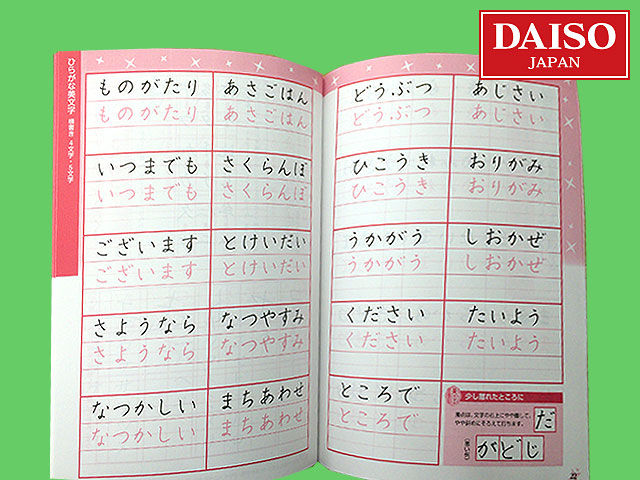 DAISO
JAPAN
ひらがな美文字 横書き 4文字・5文字
ものがたり
ものがたり
あさごはん
あさごはん
いつまでも
いつまでも
さくらんぼ
さくらんぼ
ございます
ございます
とけいだい
とけいだい
さようなら
さようなら
なつやすみ
なつやすみ
なつかしい
なつかしい
まちあわせ
まちあわせ
どうぶつ
どうぶつ
あじさい
あじさい
ひこうき
ひこうき
おりがみ
おりがみ
うかがう
うかがう
しおかぜ
しおかぜ
ください
ください
たいよう
たいよう
ところで
ところで
少し離れたところに
濁点は、文字の右上にやや離して、
やや斜めにそろえて打ちます。
だ
(悪い例)
がどじ